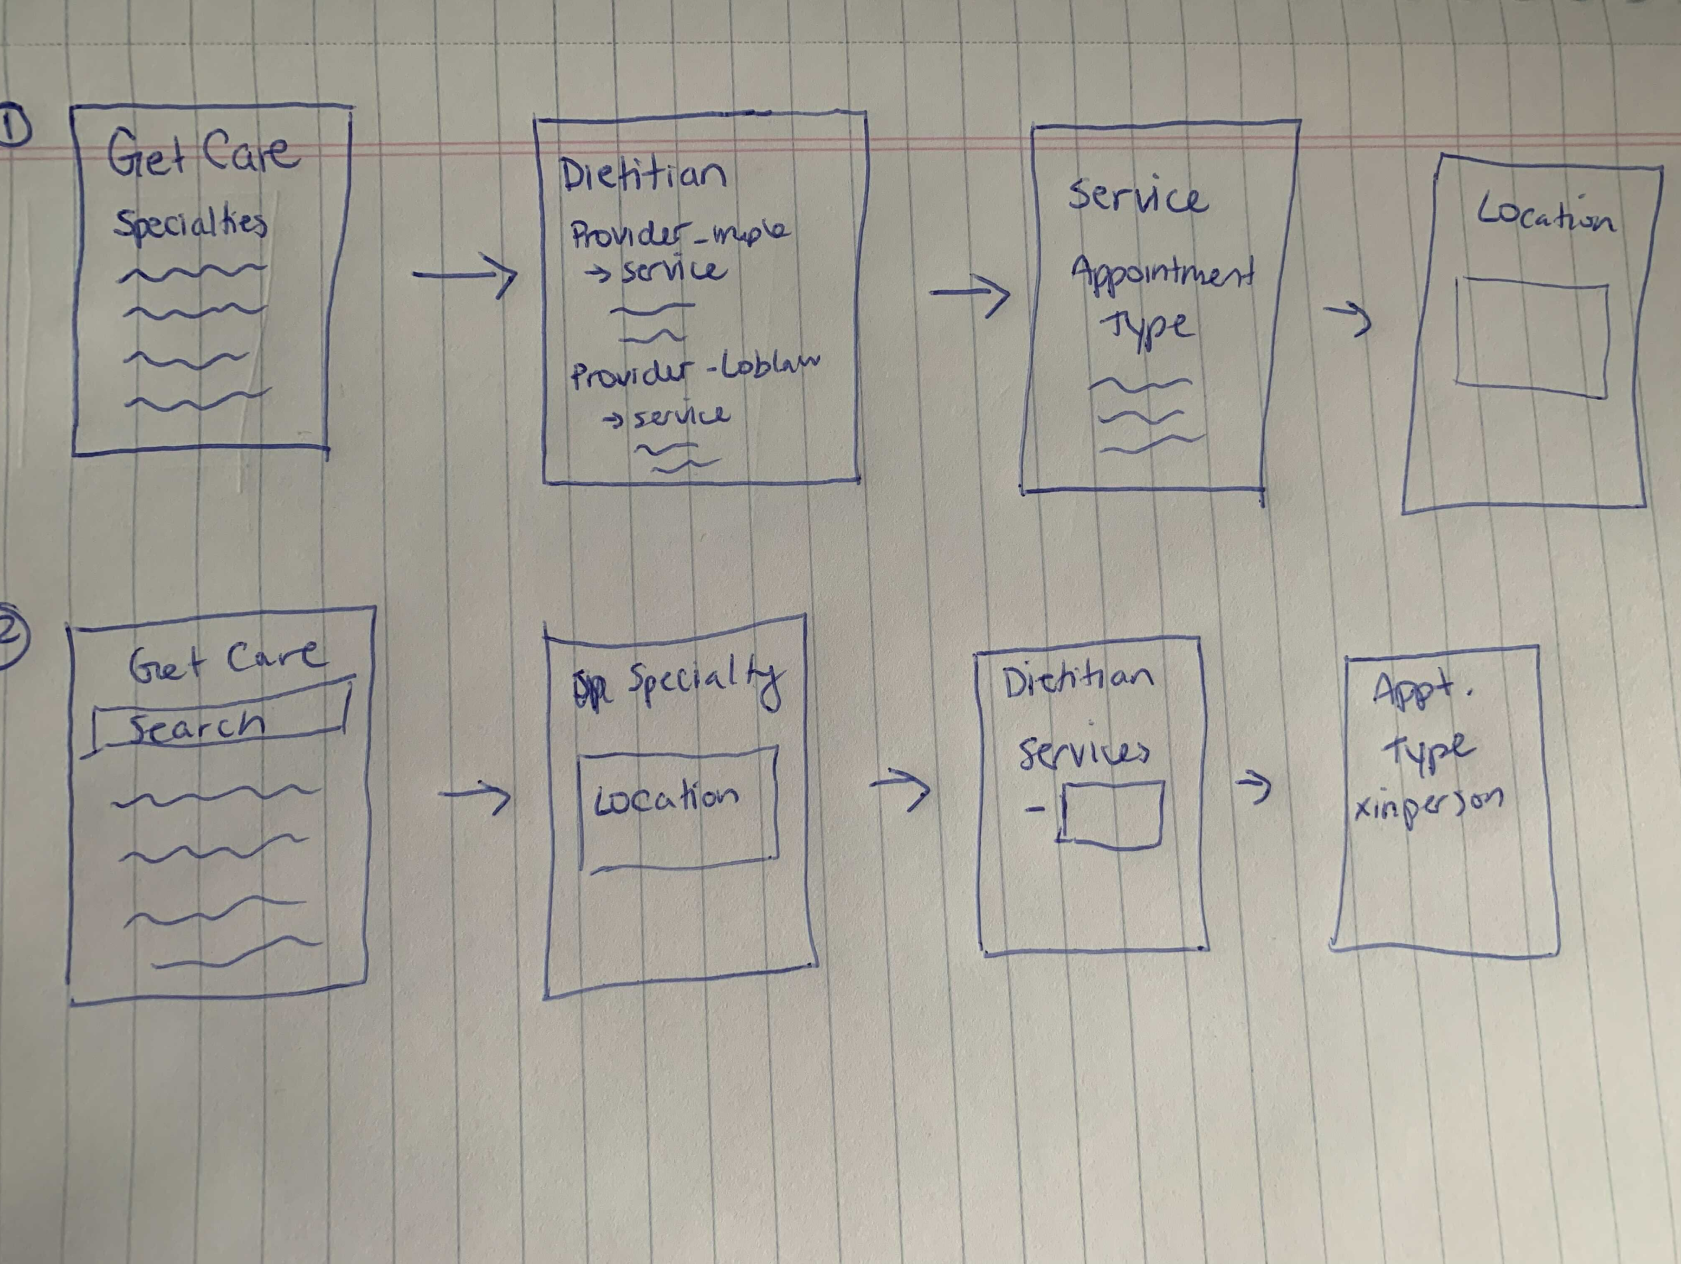 1
Get Care
Specialties
Dietitian
Provider - maple
→ service
Provider - Loblaw
→ service
Service
Appointment
Type
Location
2
Get Care
Search
Specialty
Location
Dietitian
Services
-
Appt.
Type
xinperson